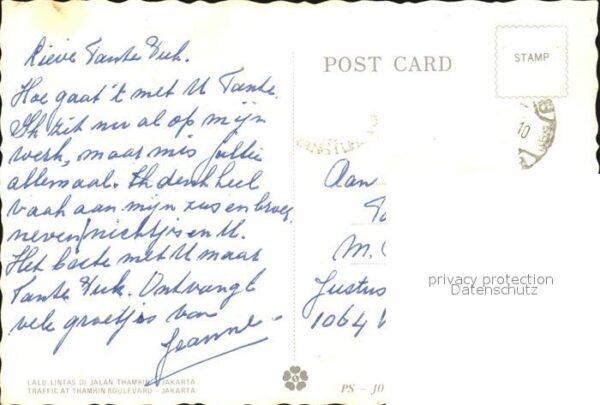 Lieve Tante Huk.
Hoe gaat 't met U Tante.
Ik zit nu al op mijn
werk, maar mis jullie
allemaal. Ik denk heel
vaak aan mijn zus en broer
neven/nichtjes en U.
Het beste met U maar
Tante Huk. Ontvangt
vele groetjes van
Jeanne
LALU LINTAS DI JALAN THAMRIN - JAKARTA
TRAFFIC AT THAMRIN BOULEVARD - JAKARTA
POST CARD
STAMP
10
Aan
Ta
M.
Justus
1064
privacy protection
Datenschutz
PS - JO